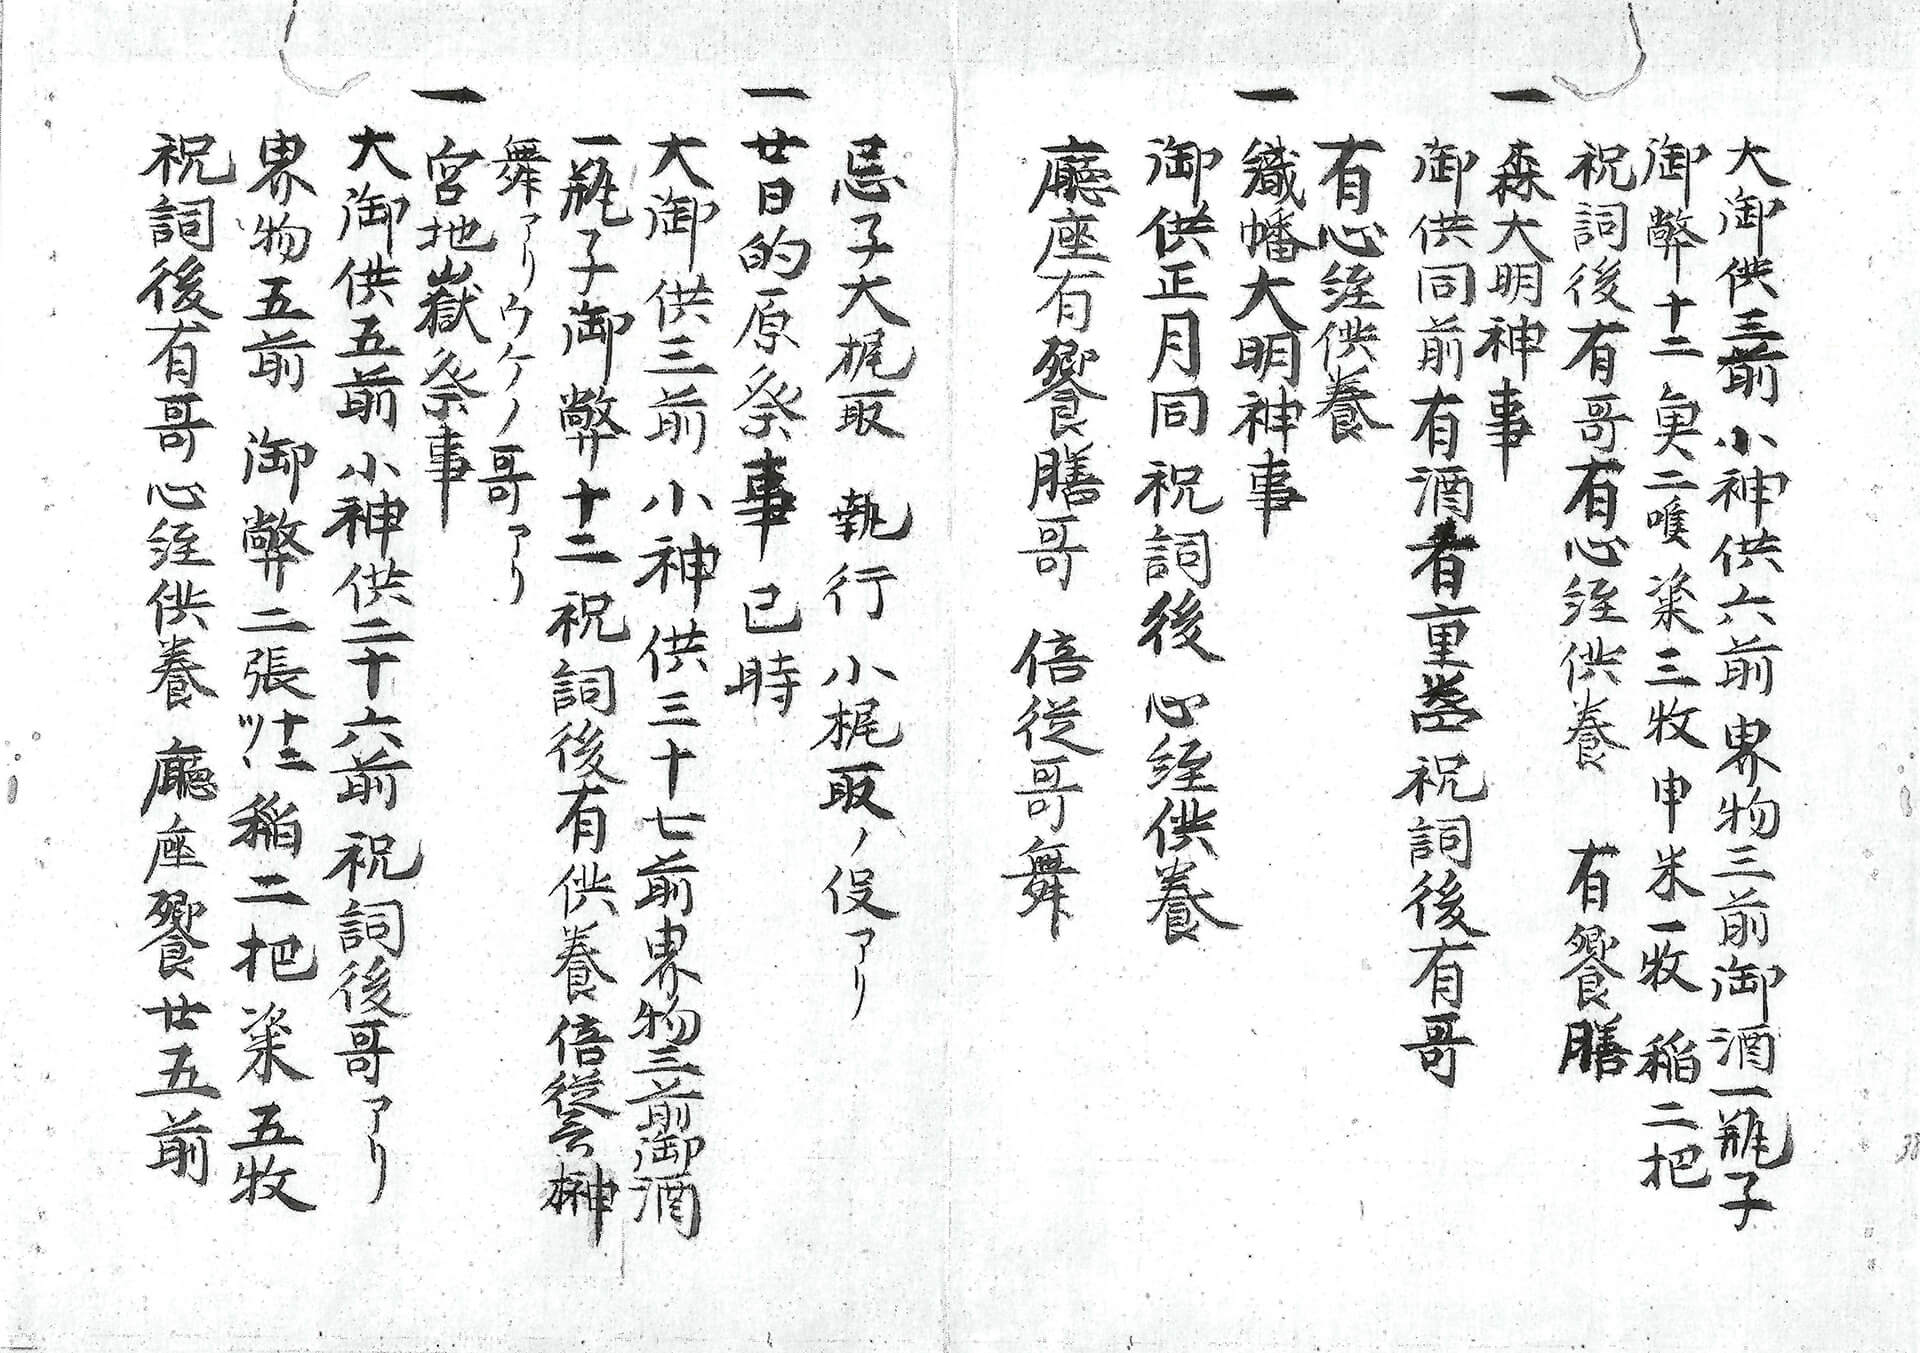 大御供三前小神供六前畀物三前御酒一瓶子
御幣十二魚二喉粢三枚申米一枚稲二把
祝詞後有哥有心経供養 有饗膳
一森大明神事
御供同前有酒肴重盃祝詞後有哥
有心経供養
一織幡大明神事
御供正月同祝詞後心経供養
廳座有饗膳哥 倍従哥舞
忌子大梶取 執行小梶取ノ役アリ
一廿日的原祭事巳時
大御供三前小神供三十七前畀物三前御酒
一瓶子御幣十二祝詞後有供養倍従会榊
舞アリウケノ哥アリ
一宮地嶽祭事
大御供五前小神供二十六前祝詞後哥アリ
畀物五前 御幣二張十二ツヽ稲二把粢五枚
祝詞後有哥心経供養 廳座饗廿五前